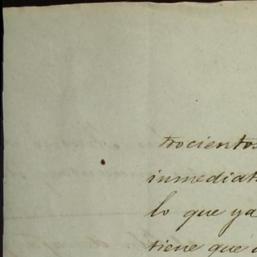 trocientos
inmediat
lo que ya
tiene que